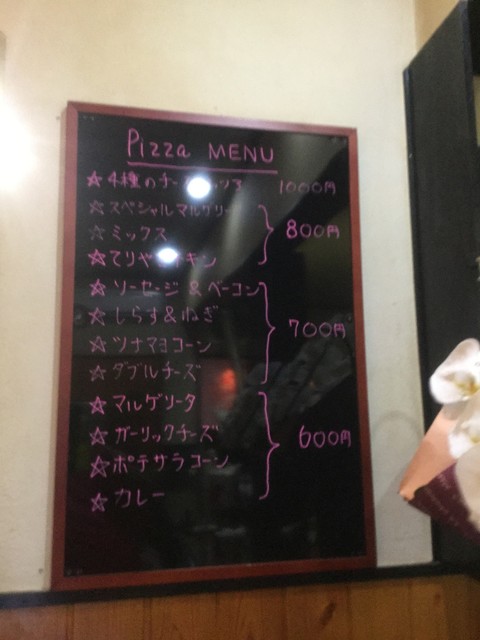 Pizza MENU
☆4種のチー 1000円
☆スペシャルマルゲリータ
☆ミックス 800円
☆てりやきチキン
☆ソーセージ & ベーコン
☆しらす&ねぎ
☆ツナマヨコーン 700円
☆ダブルチーズ
☆マルゲリータ
☆ガーリックチーズ 600円
☆ポテサラコーン
☆カレー